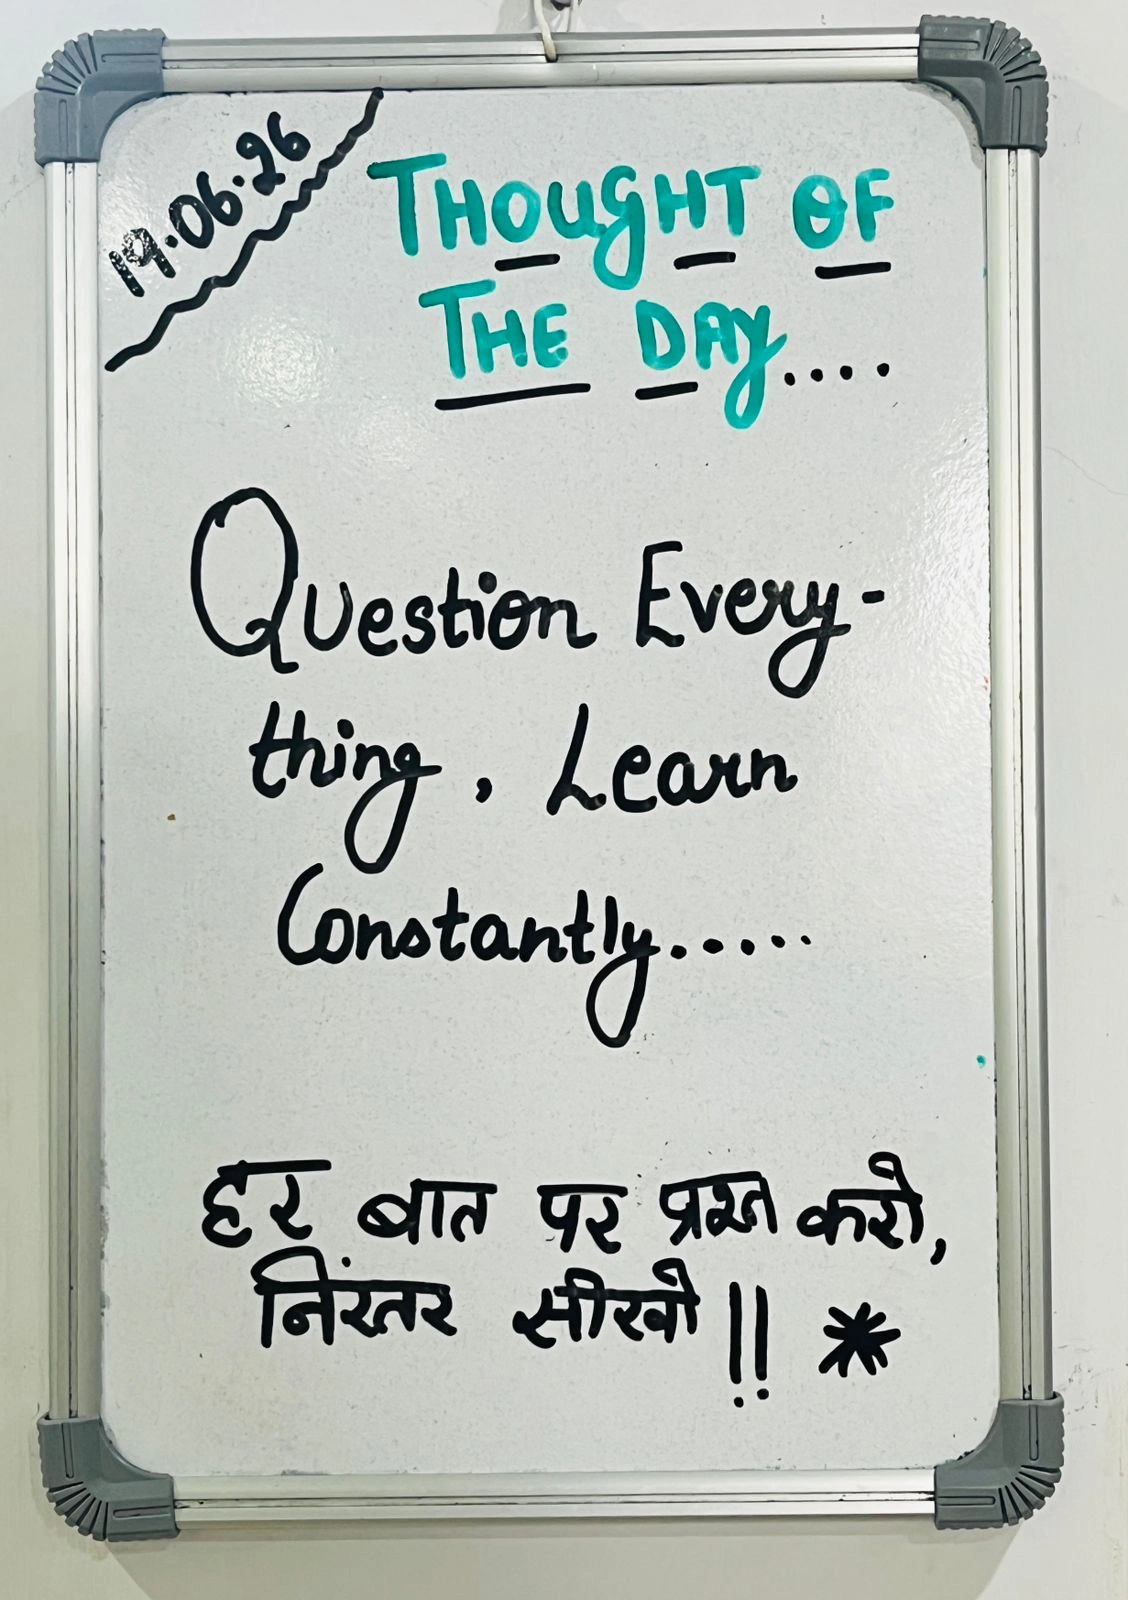 19.06.26
THOUGHT OF
THE DAY....
Question Every-
thing, Learn
Constantly.....
हर बात पर प्रश्न करो,
निरंतर सीखो!! *